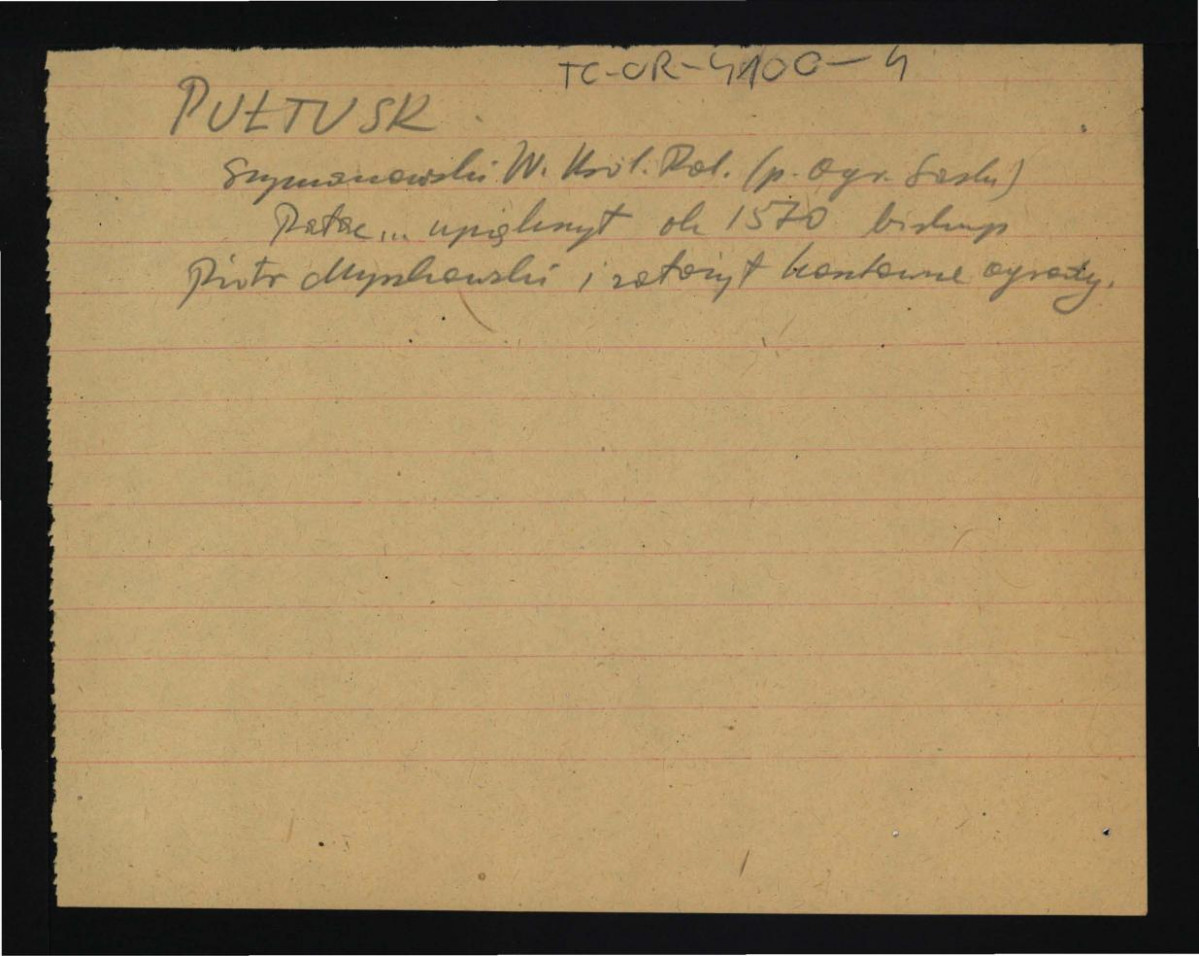 TC-OR-4100-4
PUŁTUSK
Szymanowski W. Król. Pol. (p. Ogr. Saski)
Pałac... upiększył ok 1570 biskup
Piotr Myszkowski i założył kosztowne ogrody.